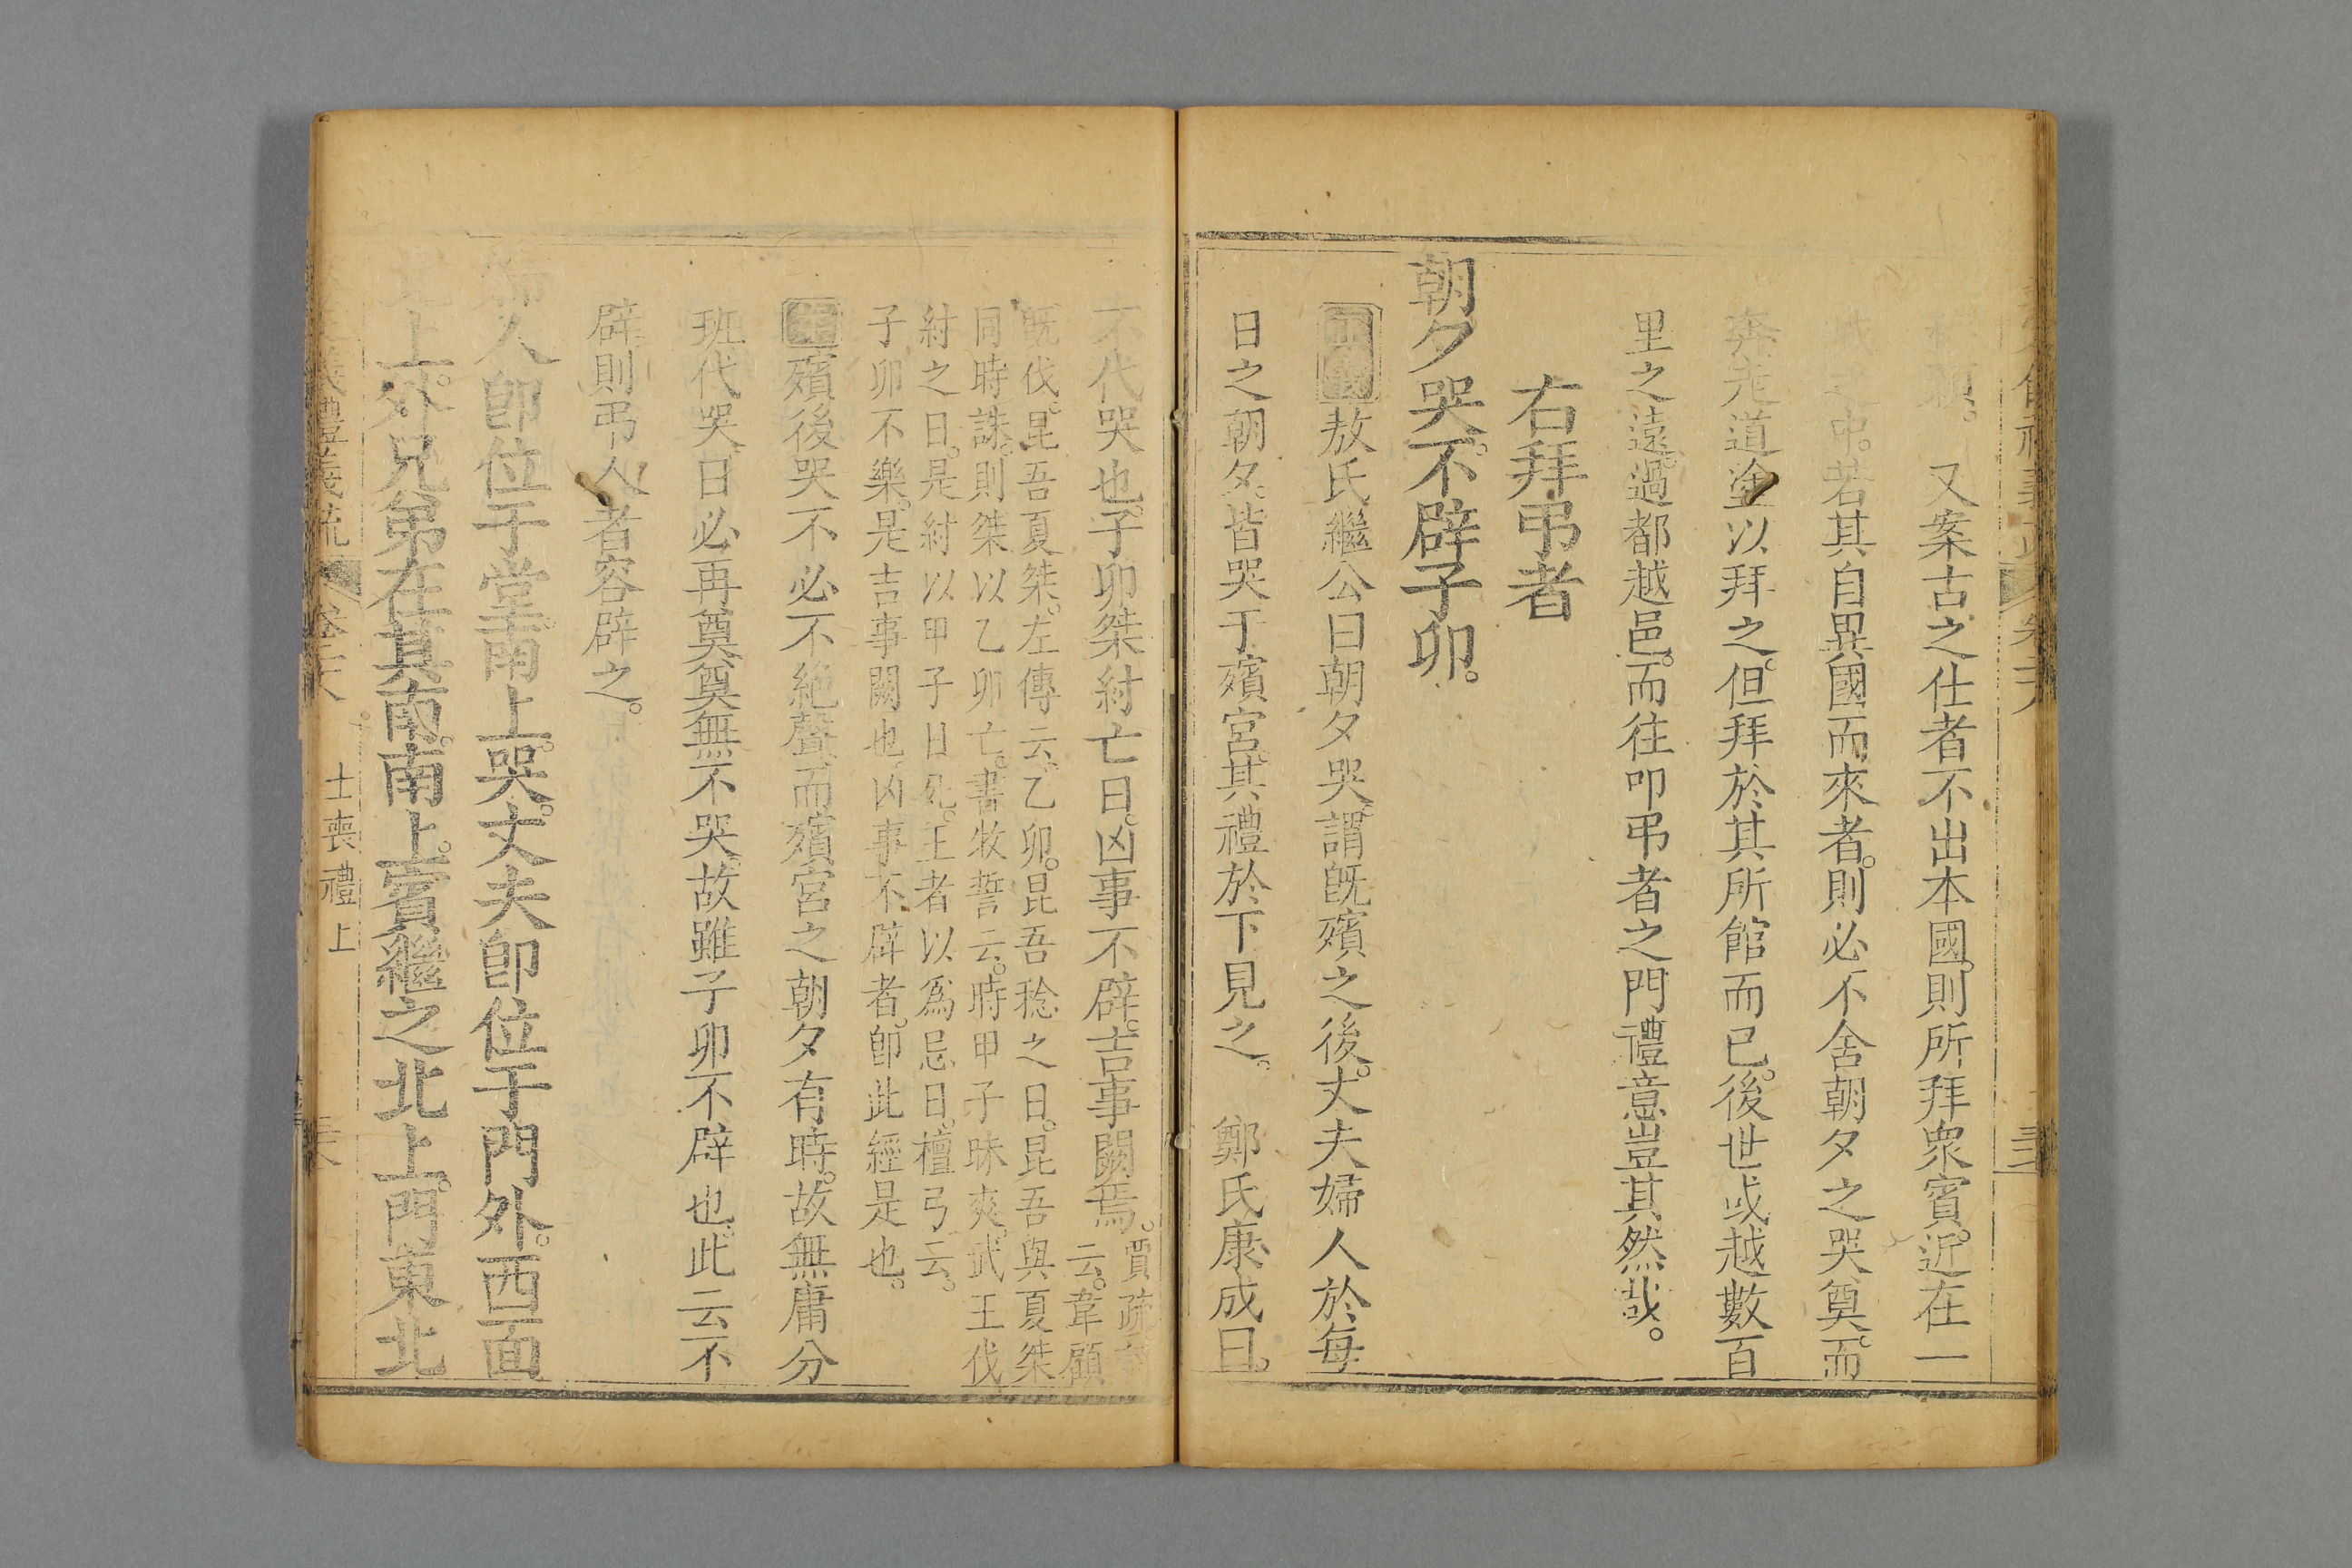 又案古之仕者不出本國則所拜衆賓近在一
中若其自異國而來者則必不舍朝夕之哭奠而
奔走道塗以拜之但拜於其所館而已後世或越數百
里之遠過都越邑而往叩弔者之門禮意豈其然哉。
右拜弔者
朝夕哭不辟子卯。
敖氏繼公曰朝夕哭謂旣殯之後丈夫婦人於每
日之朝夕皆哭于殯宮其禮於下見之。 鄭氏康成曰。
不代哭也。子卯桀紂亡日。凶事不辟。吉事闕焉。賈疏
云。韋顧
旣伐。昆吾夏桀。左傳云乙卯。昆吾稔之日。昆吾與夏桀
同時誅。則桀以乙卯亡。書牧誓云。時甲子昧爽。武王伐
紂之日。是紂以甲子日死。王者以爲忌日。檀弓云。
子卯不樂。是吉事闕也凶事不辟者。卽此經是也。
殯後哭不必不絶聲而殯宮之朝夕有時。故無庸分
班代哭日必再奠奠無不哭故雖子卯不辟也此云不
辟則弔人者容辟之。
婦人卽位于堂南上哭。丈夫卽位于門外。西面
北上。外兄弟在其南南上。賓繼之北上。門東北
禮義疏 卷 士喪禮上